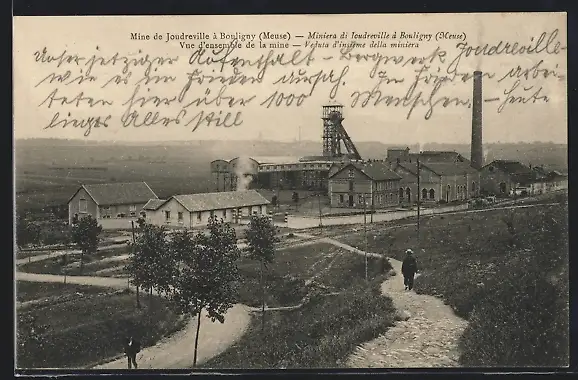 Mine de Joudreville à Bouligny (Meuse) — Miniera di Joudreville à Bouligny (Meuse)
Vue d'ensemble de la mine — Veduta d'insieme della miniera
Unser jetziger Aufenthalt – Bergwerk Joudreville –
wie es im Frieden aussah. Im Frieden arbei-
teten hier über 1000 Menschen, – heute
liegt Alles still